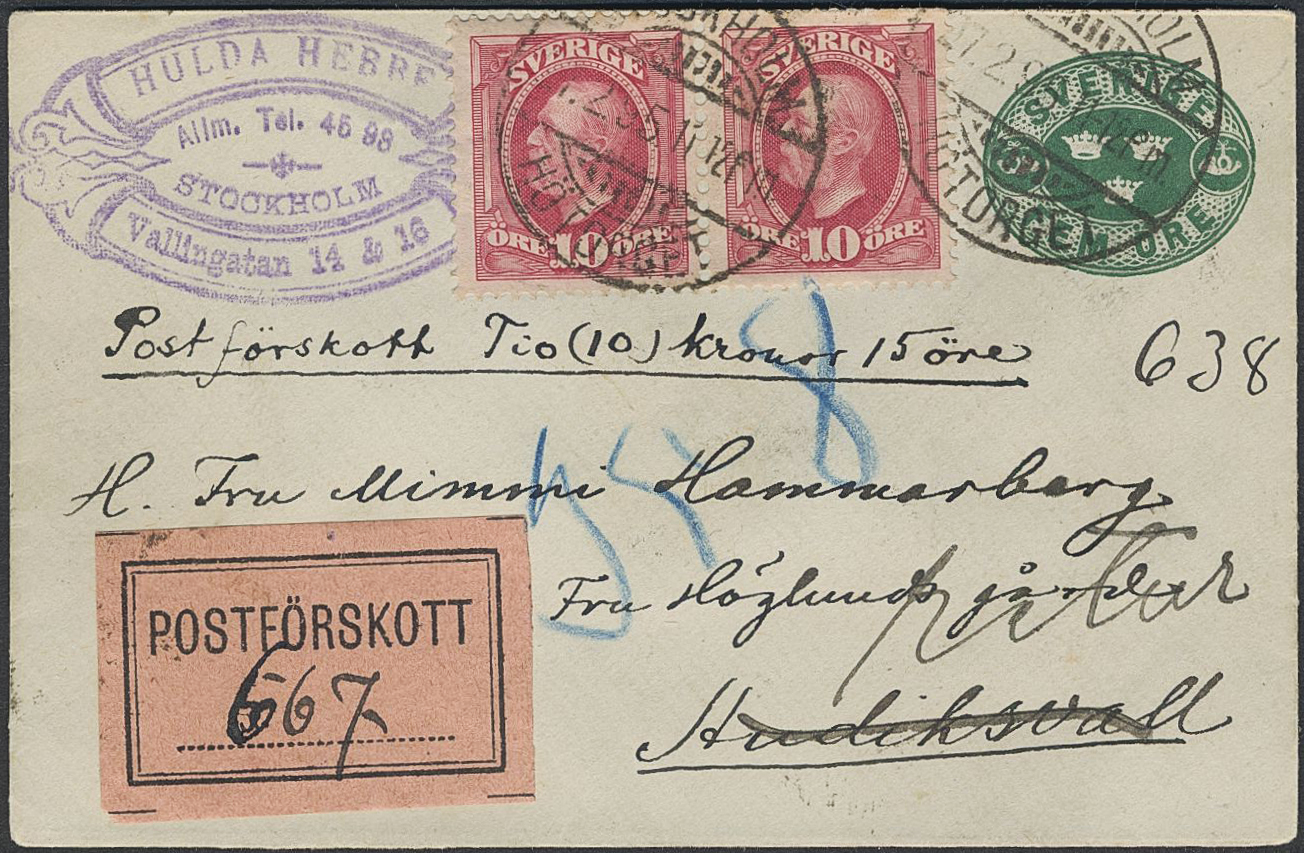 HULDA HEBRE
Allm. Tel. 45 98
STOCKHOLM
Vallingatan 14 & 16
SVERIGE
ÖRE 10 ÖRE
SVERIGE
ÖRE 10 ÖRE
SVERIGE
FEM ÖRE
STOCKHOLM
HÖTORGET
STOCKHOLM
HÖTORGET
Postförskott Tio (10) kronor 15 öre
638
8
H. Fru Mimmi Hammarberg
Fru Höglunds gård
POSTFÖRSKOTT
667
Hudiksvall